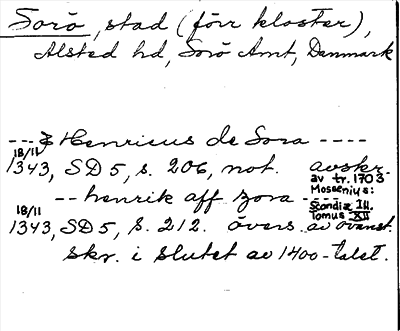 Sorö, stad (förr kloster),
Alsted hd, Sorö Amt, Danmark
---- Henricus de Sora ----
18/11
1343, SD 5, s. 206, not. avskr.
av tr. 1703
Mossenius:
-- henrik aff zora ----
Scondia Ill.
Tomus XII
18/11
1343, SD 5, s. 212. övers. av ovanst.
skr. i slutet av 1400-talet.